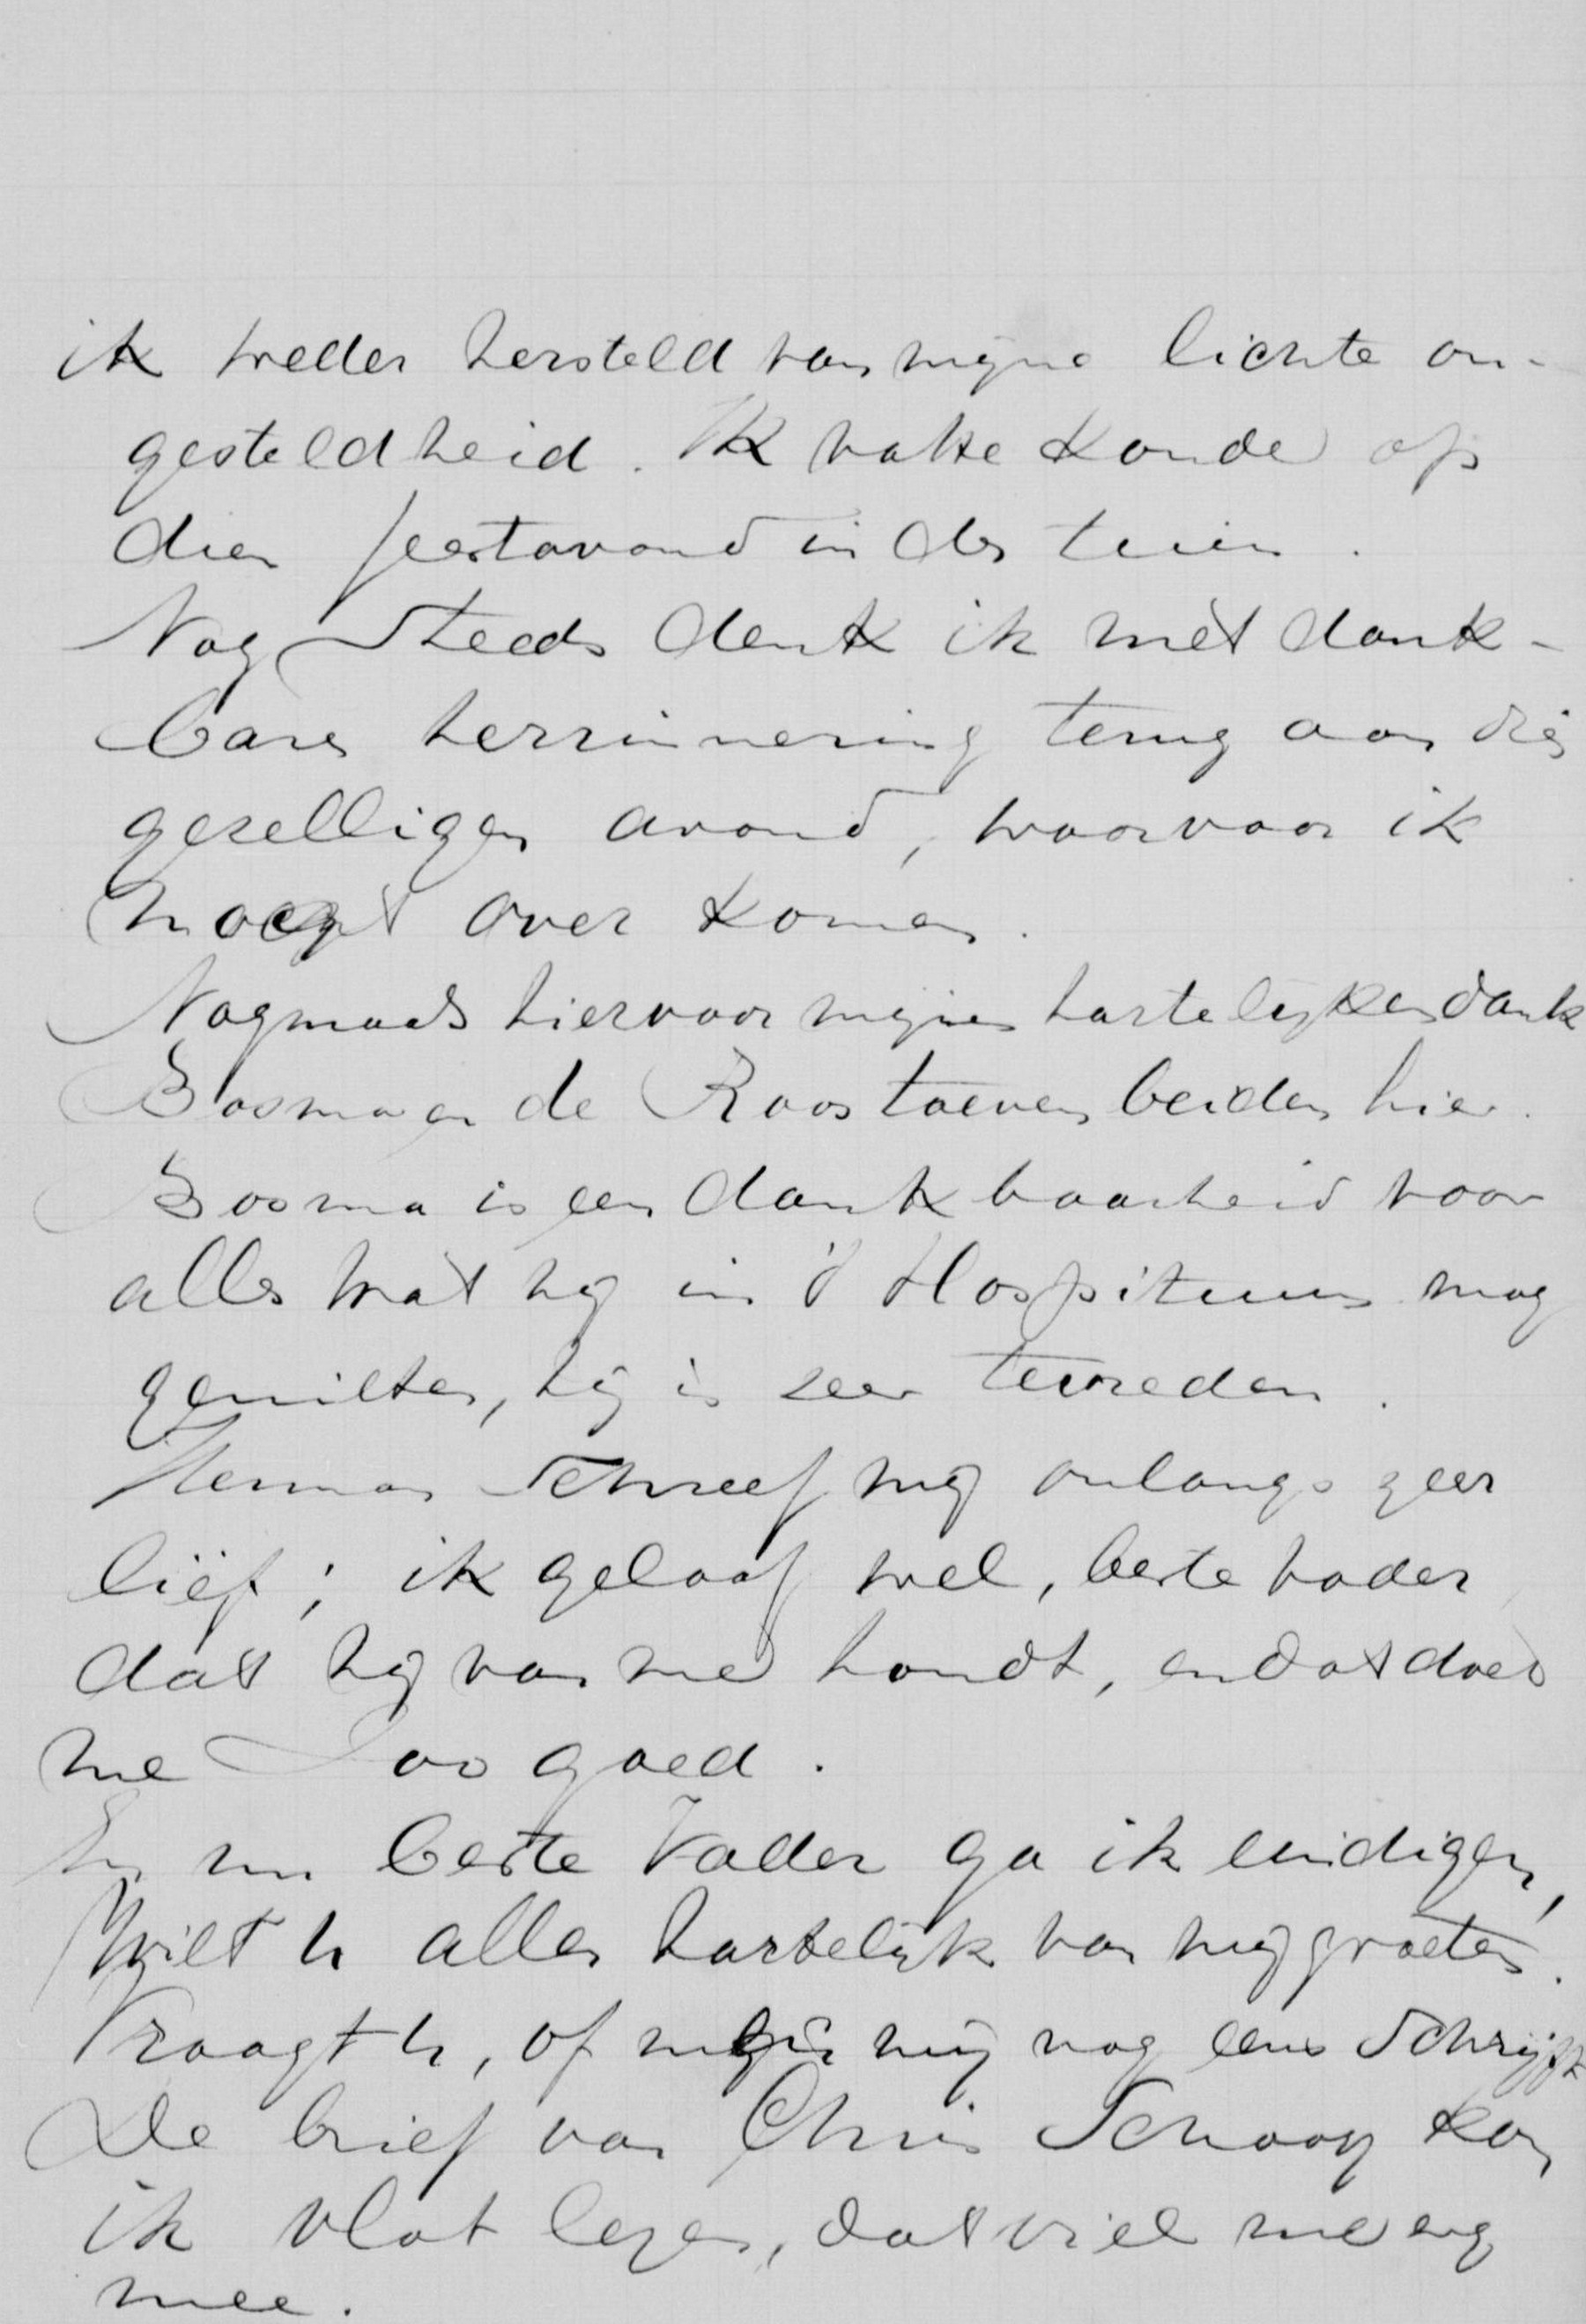 ik weder hersteld van mijne lichte on-
gesteldheid. Ik vatte koude op
dien feestavond in den tuin.
Nog steeds denk ik met dank-
bare herrinnering terug aan die
gezelligen avond, waarvoor ik
mocht over komen.
Nogmaals hiervoor mijnen hartelijken dank
Bosma en de Roos toeven beiden hier.
Bosma is een dankbaarheid voor
alles wat hij in 't Hospitium mag
genieten, hij is zeer tevreden.
Herman schreef mij onlangs zeer
lief; ik geloof wel, beste vader
dat hij van me houdt, en dat doet
me zoo goed.
En nu beste Vader ga ik eindigen,
Wilt U allen hartelijk van mij groeten.
Vraagt U, of men mij nog eens schrijft
De brief van Chris Schoop kon
ik vlot lezen, dat viel me erg
mee.